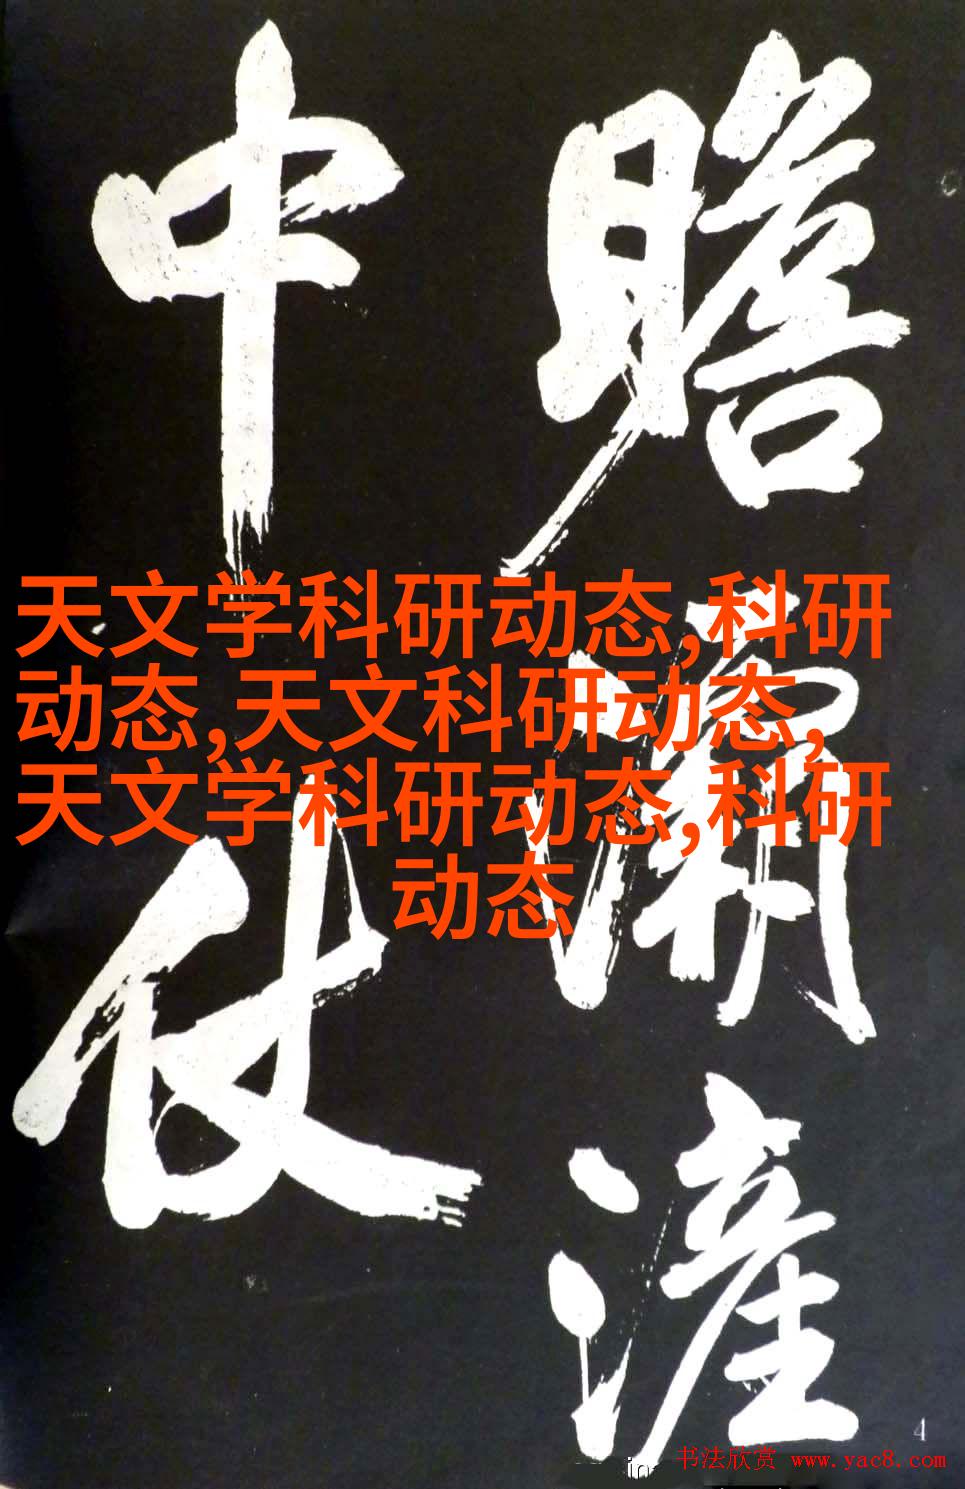 瞻灞滻
中仗
天文学科研动态,科研
动态,天文科研动态,
天文学科研动态,科研
动态
4
书法欣赏 www.yac8.com